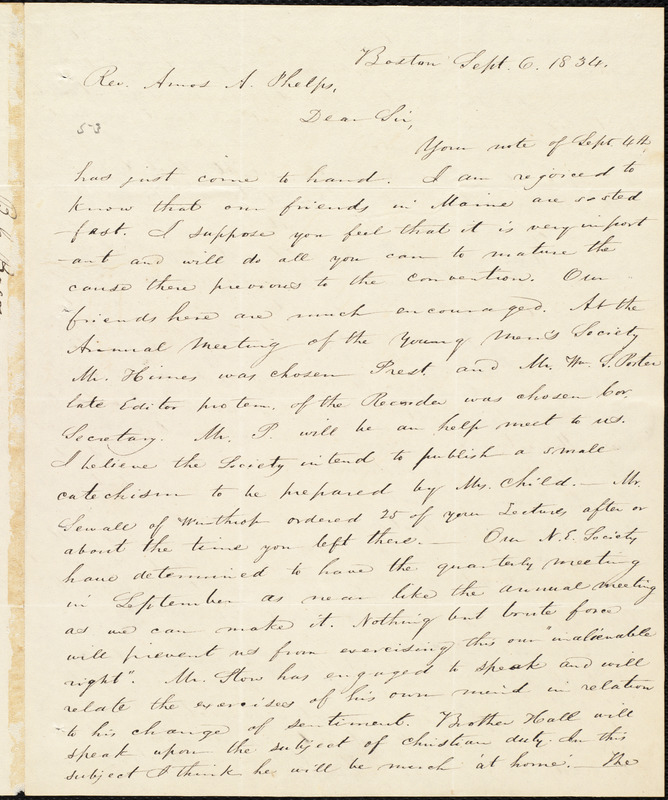 Boston Sept. 6. 1834.
Rev. Amos A. Phelps,
Dear Sir,
53
Your note of Sept 4th
has just come to hand. I am rejoiced to
know that our friends in Maine are so sted
fast. I suppose you feel that it is very import
ant and will do all you can to mature the
cause there previous to the convention. Our
friends here are much encouraged. At the
Annual Meeting of the Young Men's Society
Mr. Himes was chosen Prest. and Mr. Wm. S. Porter
late Editor protem. of the Recorder was chosen Cor.
Secretary. Mr. P. will be an help meet to us.
I believe the Society intend to publish a small
catechism to be prepared by Mrs. Child. — Mr.
Sewall of Winthrop ordered 25 of your Lectures after or
about the time you left there. — Our N.E. Society
have determined to have the quarterly meeting
in September as near like the annual meeting
as we can make it. Nothing but brute force
will prevent us from exercising this our "inalienable
right". Mr. Stow has engaged to speak and will
relate the exercises of his own mind in relation
to his change of sentiment. Brother Hall will
speak upon the subject of christian duty. In this
subject I think he will be much at home. — The